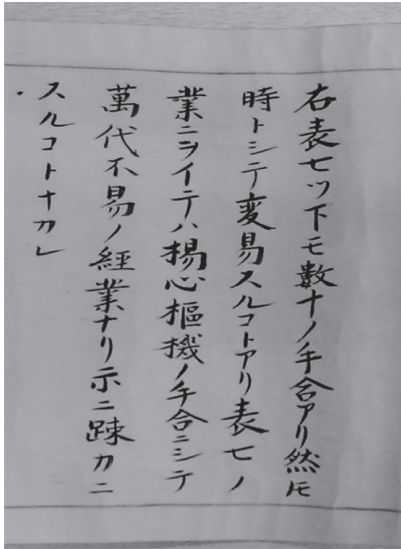 右表七ツ下モ數十ノ手合アリ然𪜈
時トシテ変易スルコトアリ表七ノ
業ニヲイテハ楊心樞機ノ手合ニシテ
萬代不易ノ經業ナリ示ニ踈カニ
スルコトナカレ